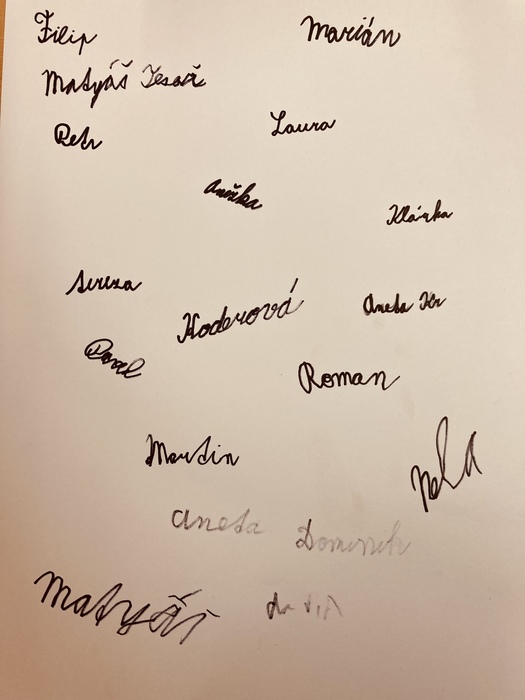 Filip
Marián
Matyáš Tesař
Petr
Laura
Anežka
Klárka
Tereza
Koderová
Aneta Kr
Pavel
Roman
Martin
Nela
Aneta
Dominik
Matyáš
David